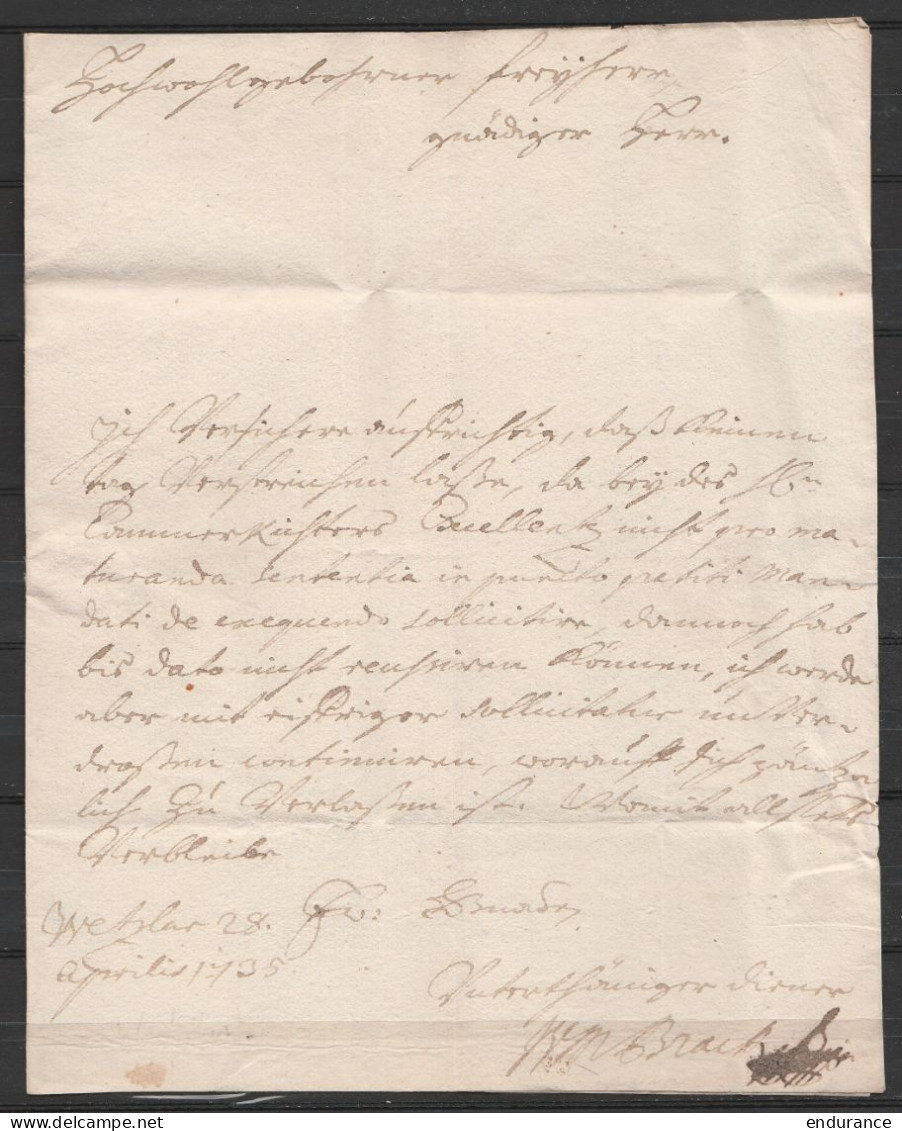 Hochwohlgebohrner Freyherr,
gnädiger Herr.
Ich Versichere aufrichtig, daß Keinen
tag Verstreichen laße, da bey des
Cammerrichters Excellentz nicht pro ma-
turanda sententia in puncto petiti Man-
dati de exequendo sollicitire, dannoch hab
bis dato nicht reussiren Können, ich werde
aber mit eifriger sollicitatur unVer-
droßen continuiren, worauf sich gäntz-
lich Zu Verlaßen ist. Womit all stets
Verbleibe
Ew: Gnaden
Wetzlar 28.
Aprilis 1735
Unterthäniger diener
endurance